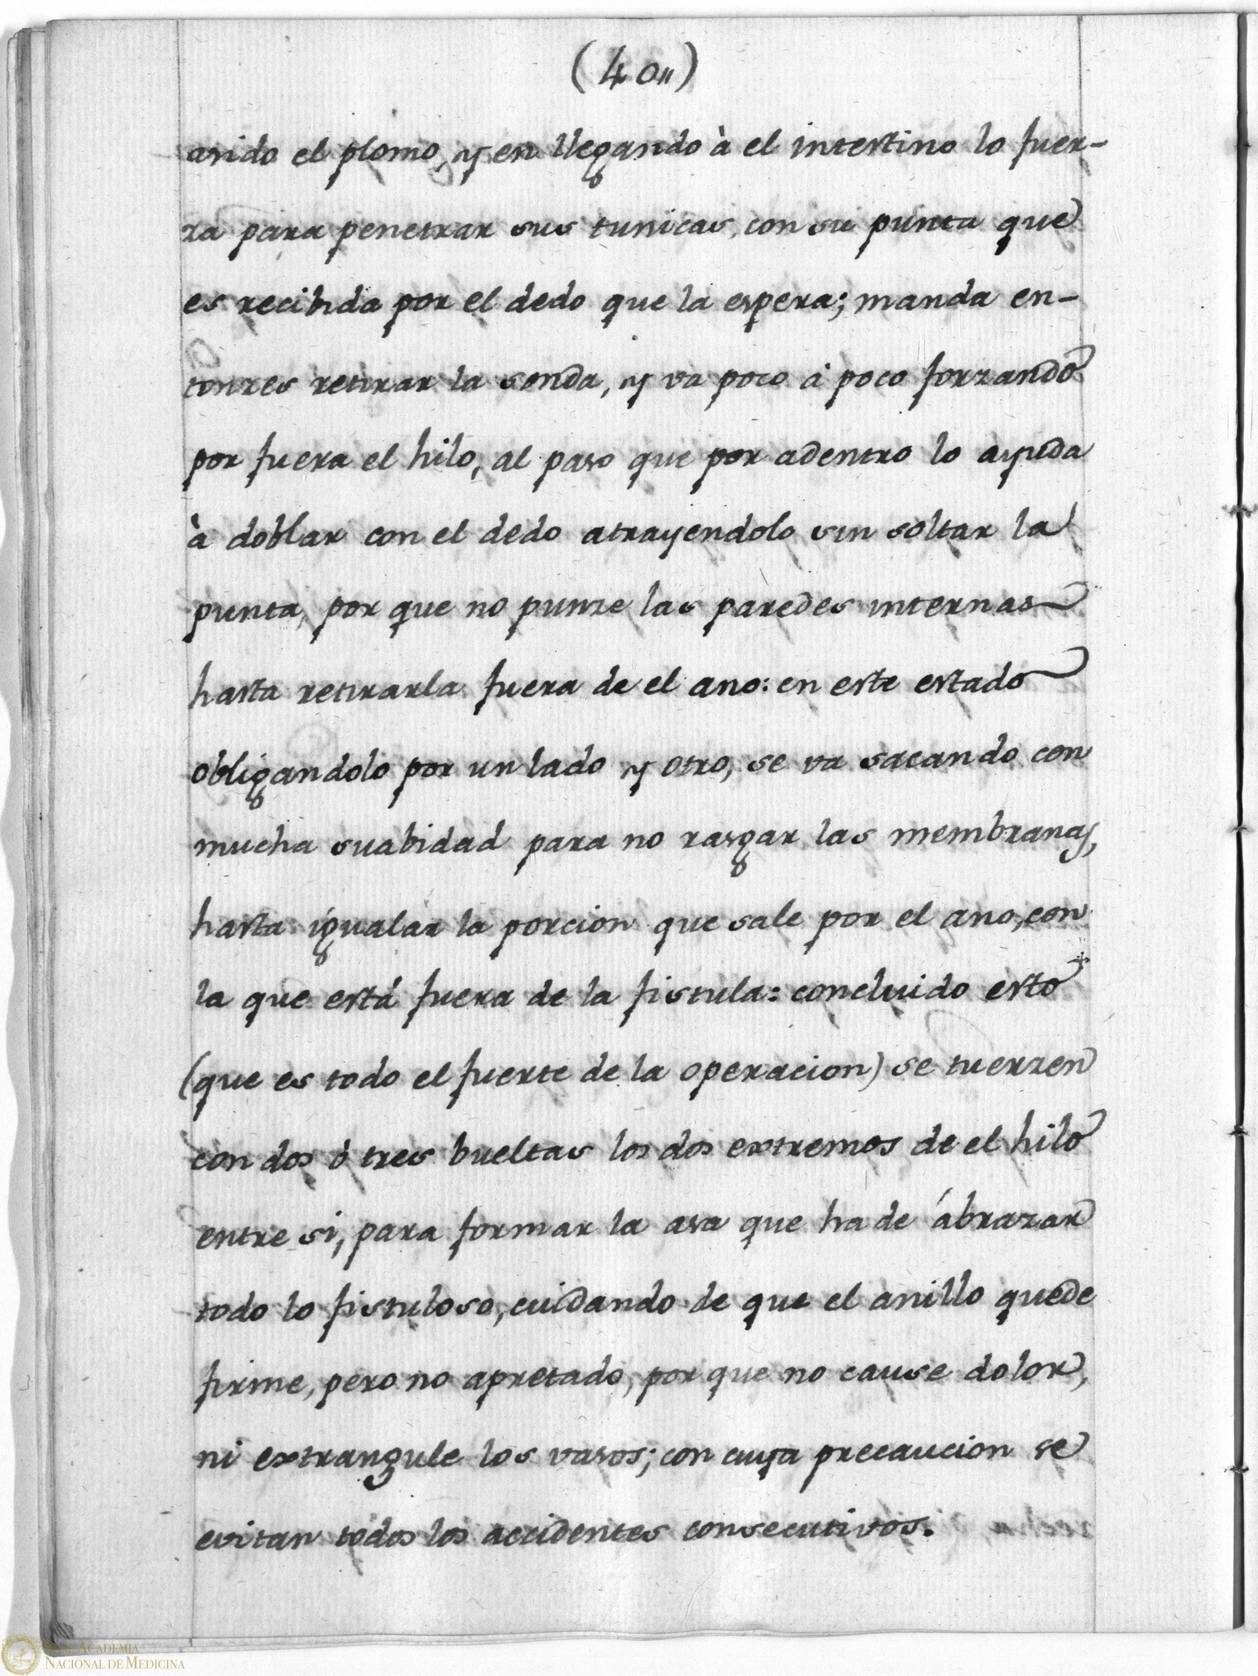 (40„)
asido el plomo, y en llegando à el intestino lo fuer-
za para penetrar sus tunicas, con su punta que
es recibida por el dedo que la espera; manda en-
tonzes retirar la sonda, y va poco á poco forzando
por fuera el hilo, al paso que por adentro lo ayuda
à doblar con el dedo atrayendolo sin soltar la
punta, por que no punze las paredes internas
hasta retirarla fuera de el ano: en este estado
obligandolo por un lado y otro, se va sacando con
mucha suabidad para no rasgar las membranas,
hasta igualar la porcion que sale por el ano, con
la que está fuera de la fistula: concluido esto
(que es todo el fuerte de la operacion) se tuerzen
con dos ò tres bueltas los dos extremos de el hilo
entre si, para formar la asa que ha de ábrazar
todo lo fistuloso, cuidando de que el anillo quede
firme, pero no apretado, por que no cause dolor,
ni extrangule los vasos; con cuya precaucion se
evitan todos los accidentes consecutivos.
REAL ACADEMIA
NACIONAL DE MEDICINA